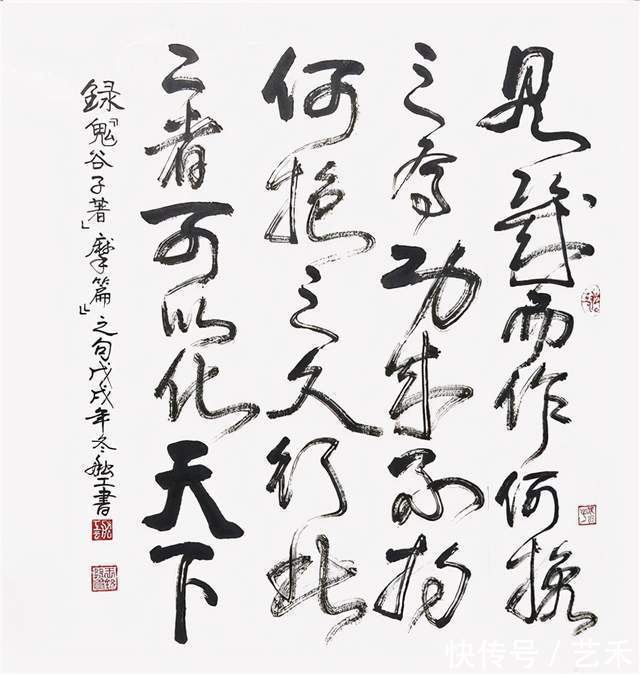 見幾而作何晚
之有功成不拘
何抱之久行此
二者可以化天下
録『鬼谷子著」摩篇』之句戊戌年冬書
快传号/艺禾